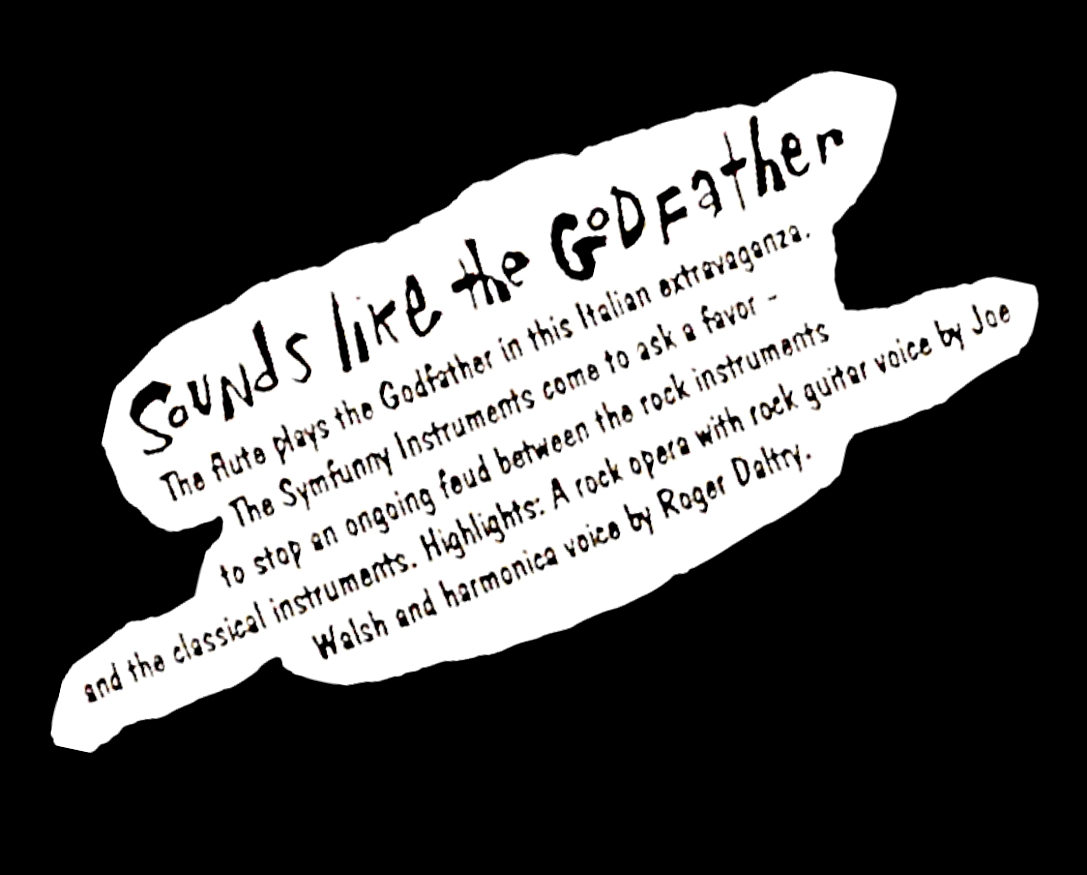 Sounds like the GODFather
The flute plays the Godfather in this Italian extravaganza.
The Symfunny Instruments come to ask a favor -
to stop an ongoing feud between the rock instruments
and the classical instruments. Highlights: A rock opera with rock guitar voice by Joe
Walsh and harmonica voice by Roger Daltry.